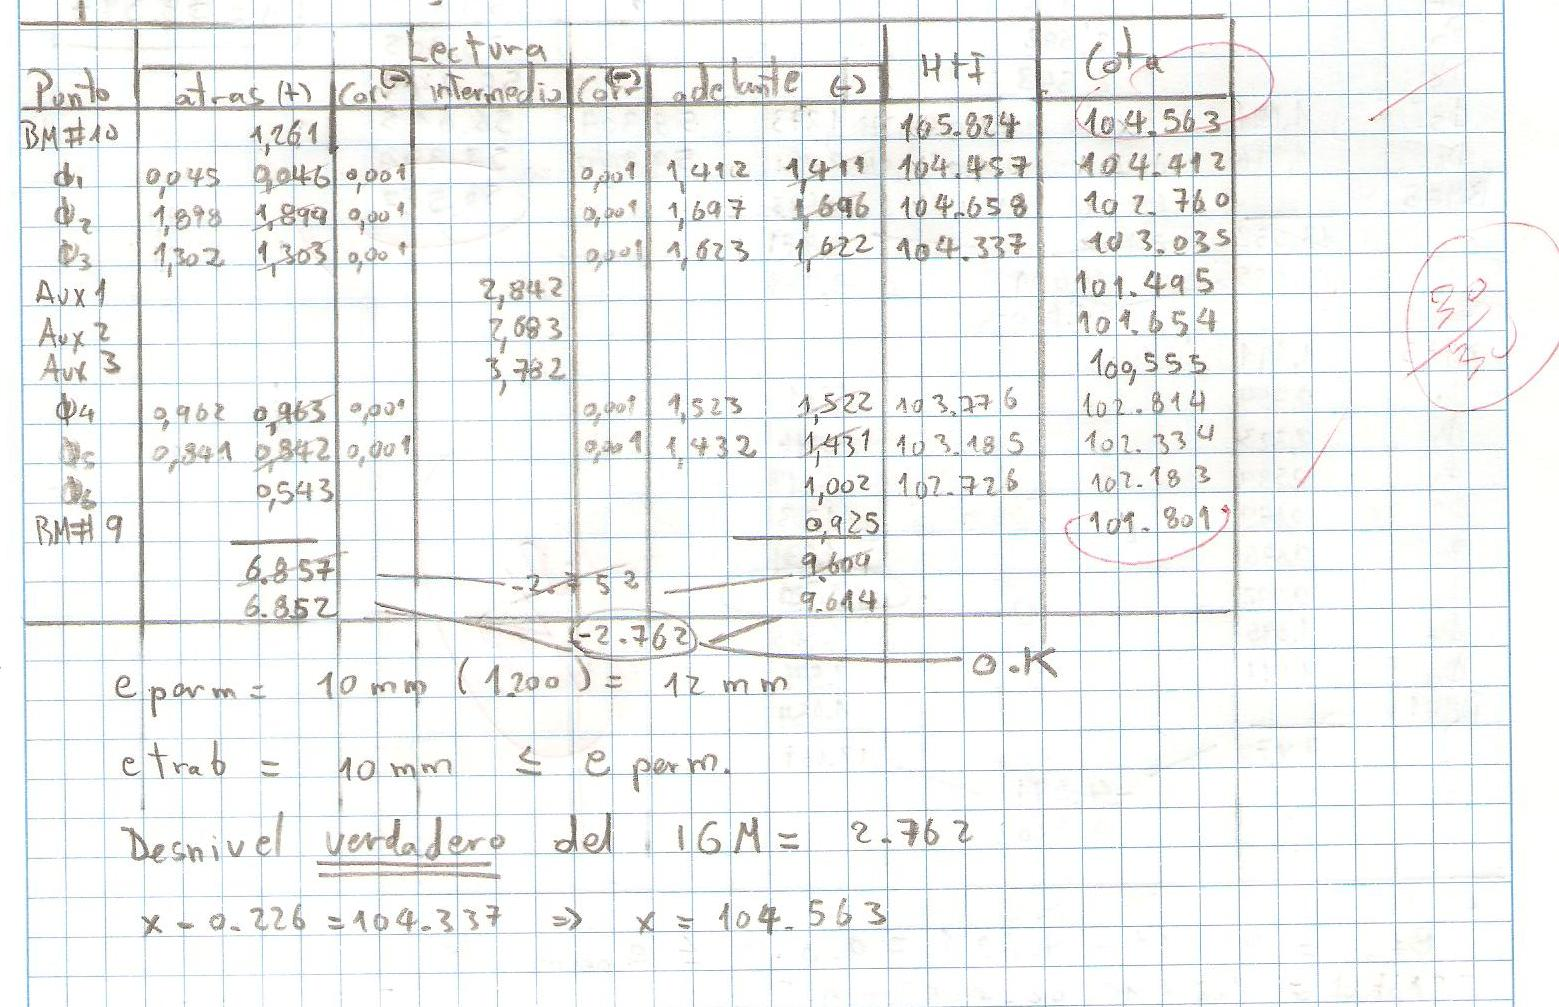 Lectura
Punto atras (+) Corr (-) intermedio Corr (-) adelante (-) H+I Cota
BM#10 1,261 105.824 104.563
φ1 0,045 0,046 0,001 0,001 1,412 1,411 104.457 104.412
φ2 1,898 1,899 0,001 0,001 1,697 1,696 104.658 102.760
φ3 1,302 1,303 0,001 0,001 1,623 1,622 104.337 103.035
Aux 1 2,842 101.495
Aux 2 2,683 101.654
Aux 3 3,782 100,555
φ4 0,962 0,963 0,001 0,001 1,523 1,522 103.776 102.814
φ5 0,841 0,842 0,001 0,001 1,432 1,431 103.185 102.334
0,543 1,002 102.726 102.183
BM#9 0,925 101.801
6.857 -2.752 9.609
6.852 9.614
-2.762
O.K
e perm = 10 mm (1.200) = 12 mm
e trab = 10 mm ≤ e perm.
Desnivel verdadero del IGM = 2.762
x - 0.226 = 104.337 => x = 104.563